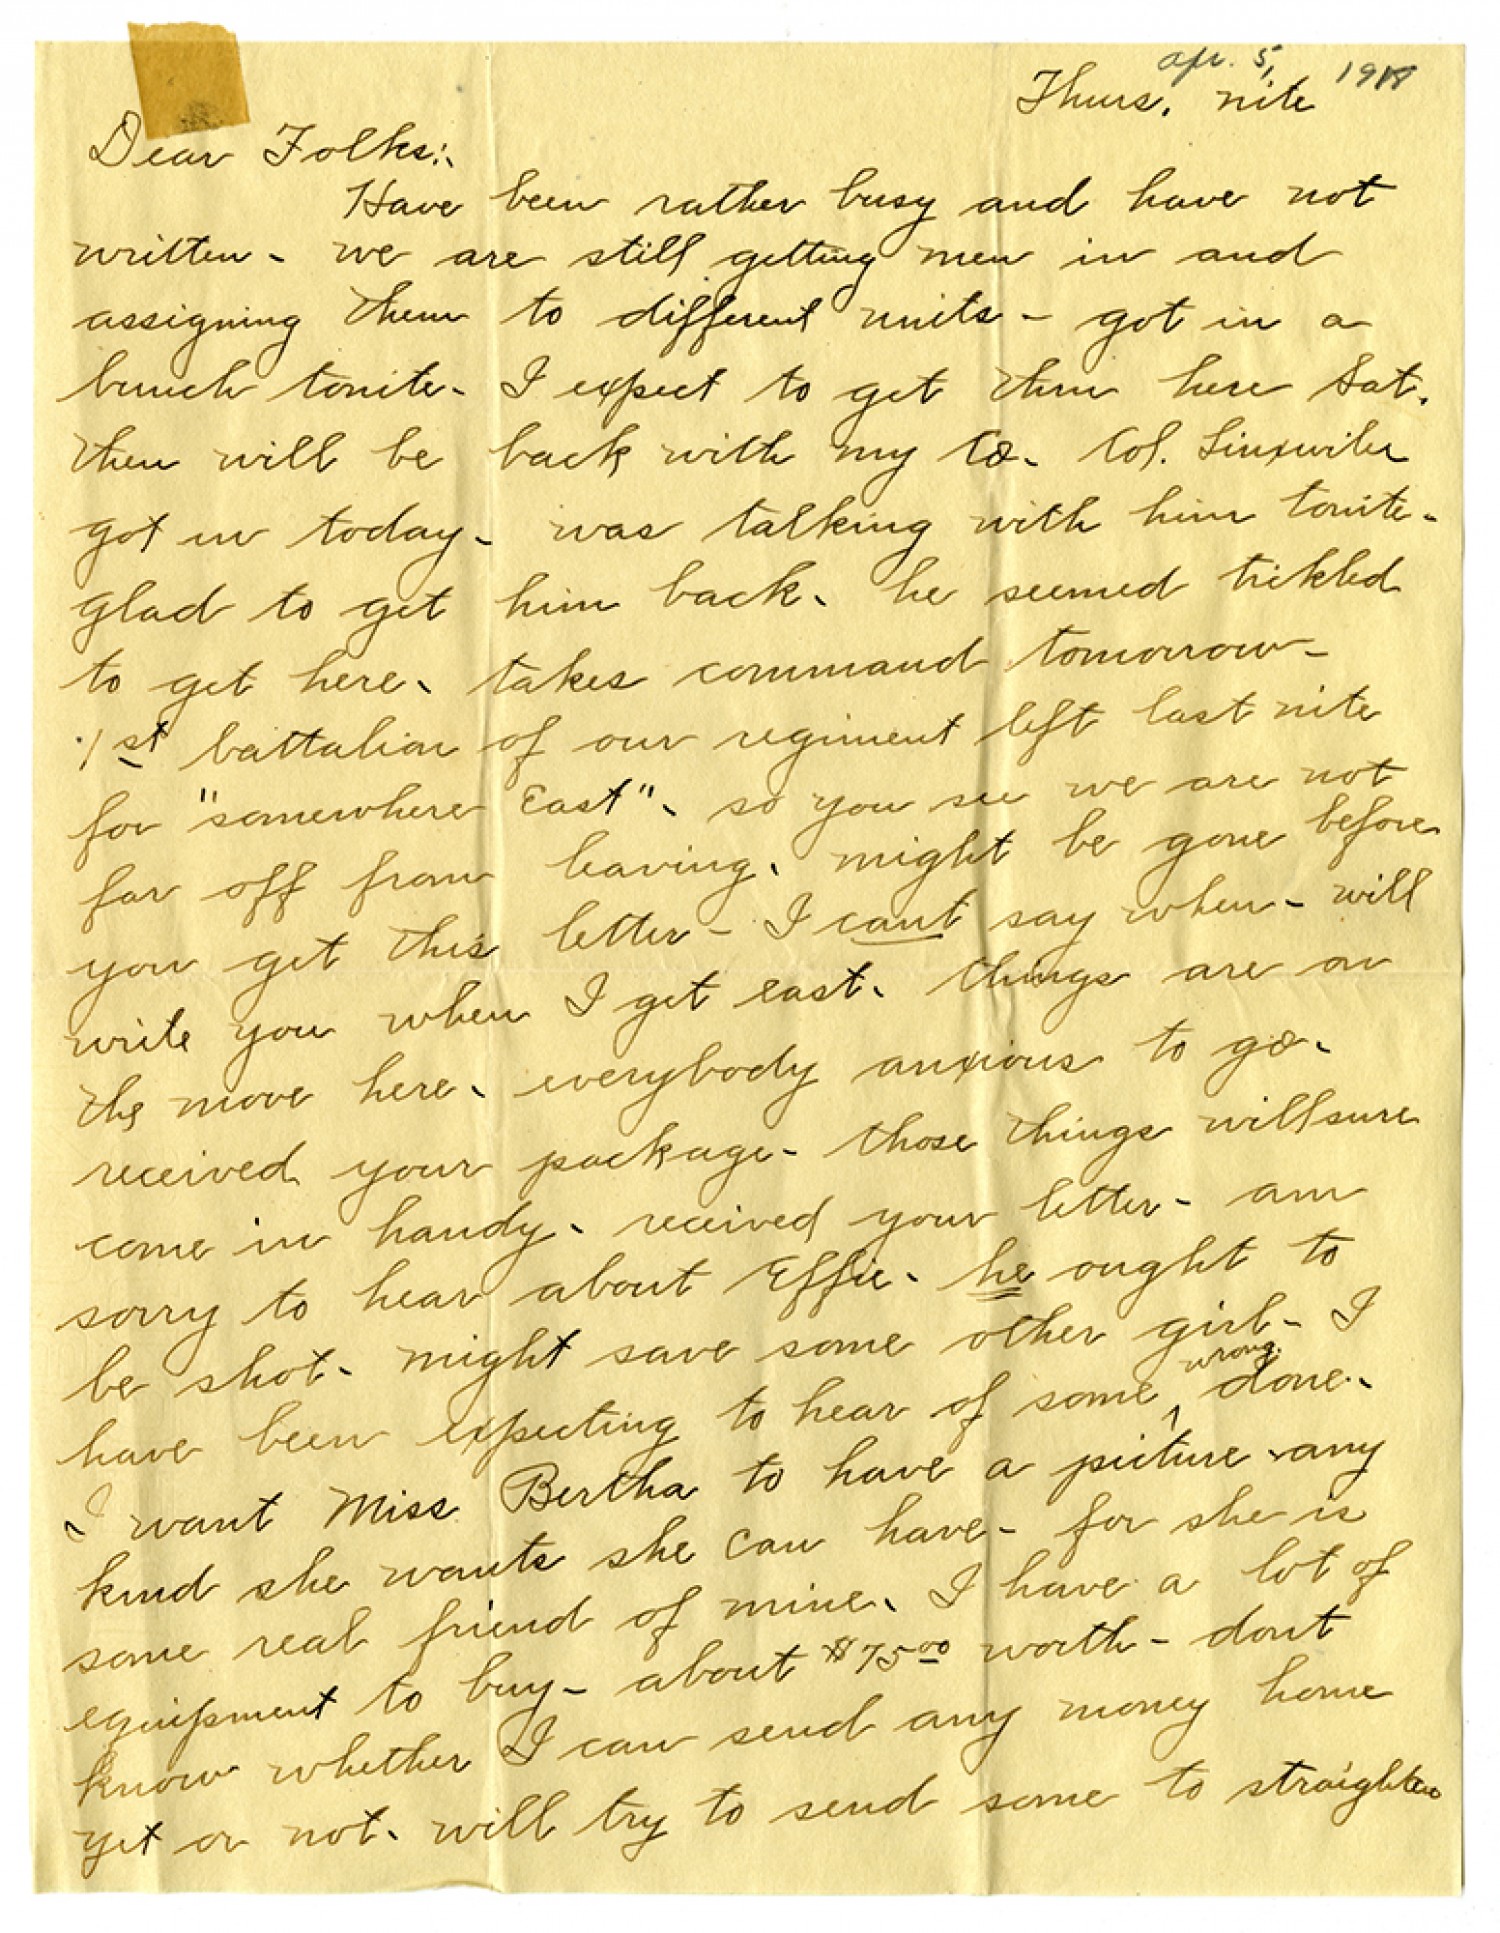 Apr. 5, 1918
Thurs. nite
Dear Folks:-
Have been rather busy and have not
written - we are still getting men in and
assigning them to different units - got in a
bunch tonite - I expect to get thru here Sat.
then will be back with my Co - Col. Linxwiler
got in today - was talking with him tonite -
glad to get him back - he seemed tickled
to get here - takes command tomorrow -
1st battalion of our regiment left last nite
for "somewhere East" - so you see we are not
far off from leaving - might be gone before
you get this letter - I cant say when - will
write you when I get east - things are on
the move here - everybody anxious to go -
received your package - those things will sure
come in handy - received your letter - am
sorry to hear about Effie - he ought to
be shot - might save some other girl - I
have been expecting to hear of some wrong done -
I want Miss Bertha to have a picture - any
kind she wants she can have - for she is
some real friend of mine - I have a lot of
equipment to buy - about $75.00 worth - dont
know whether I can send any money home
yet or not - will try to send some to straighten